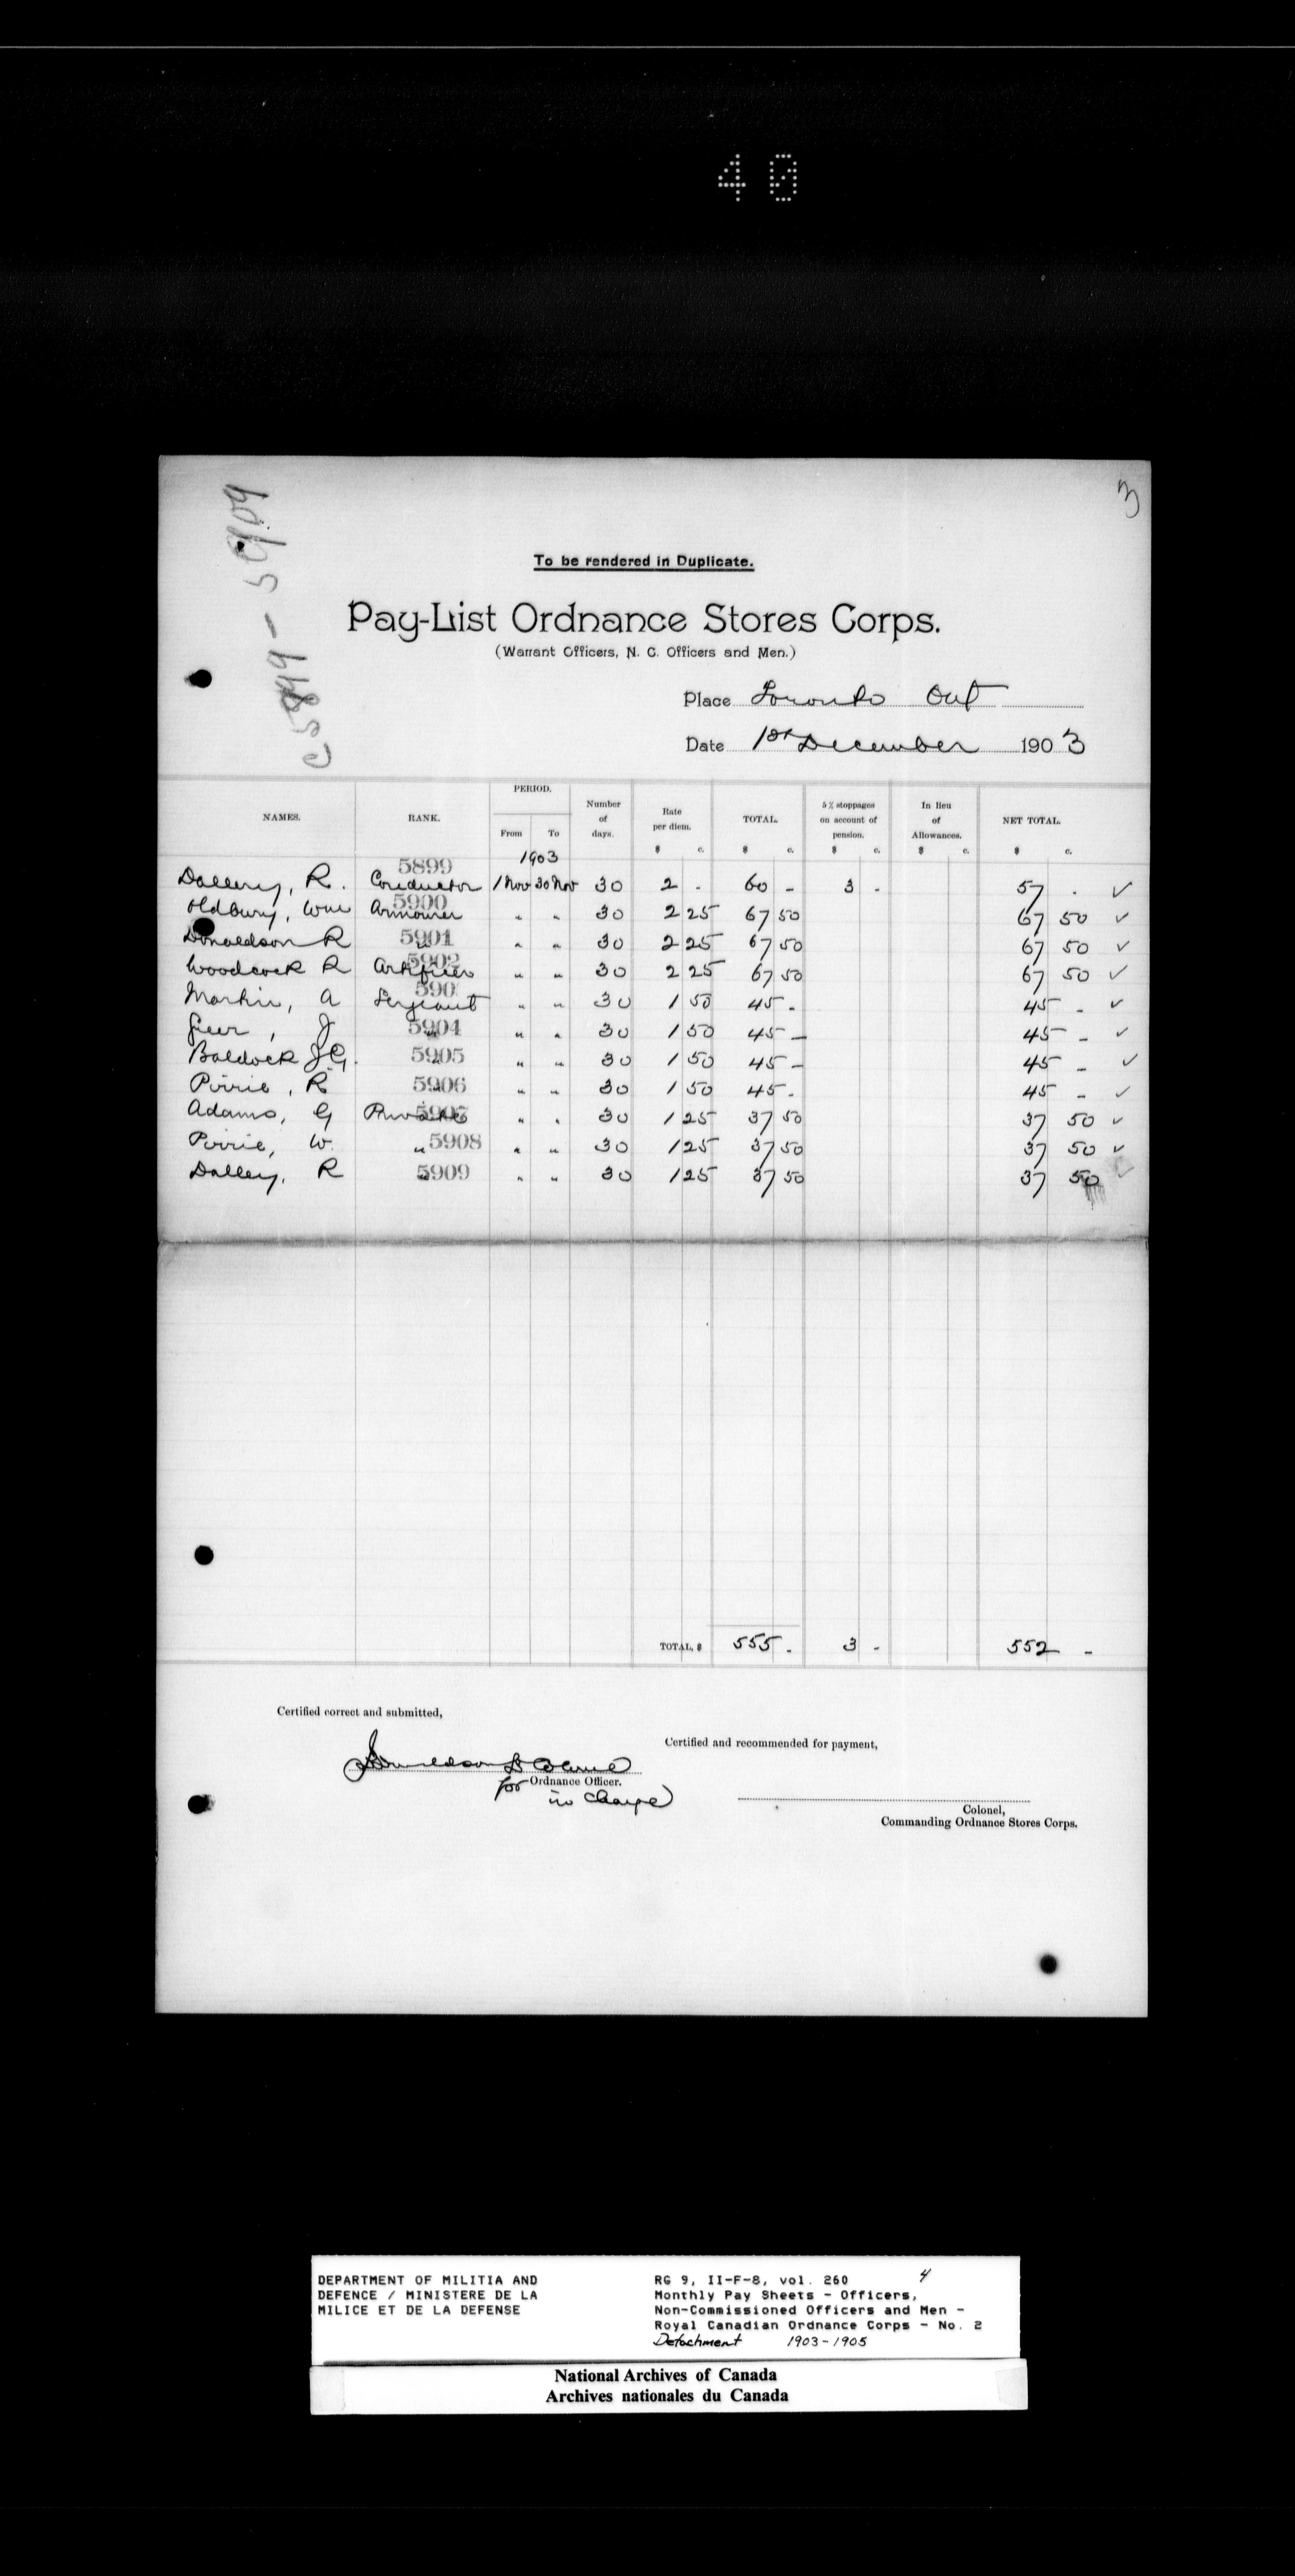 40
3
c5899 - 5909
To be rendered in Duplicate.
Pay-List Ordnance Stores Corps.
(Warrant Officers, N. C. Officers and Men.)
Place Toronto Ont
Date 1st December 1903
NAMES. RANK. PERIOD. From To Number of days. Rate per diem. $ c. TOTAL. $ c. 5% stoppages on account of pension. $ c. In lieu of Allowances. $ c. NET TOTAL. $ c.
1903
5899
Dallery, R. Conductor 1 Nov 30 Nov 30 2 - 60 - 3 - 57 . ✓
5900
Oldbury, Wm Armourer " " 30 2 25 67 50 67 50 ✓
Donaldson R 5901 " " 30 2 25 67 50 67 50 ✓
5902
Woodcock R Artificer " " 30 2 25 67 50 67 50 ✓
590
Martin, A Sergeant " " 30 1 50 45 - 45 - ✓
Geer, J 5904 " " 30 1 50 45 - 45 - ✓
Baldock JG. 5905 " " 30 1 50 45 - 45 - ✓
Pirrie, R 5906 " " 30 1 50 45 - 45 - ✓
Adams, G Private 5907 " " 30 1 25 37 50 37 50 ✓
Pirrie, W. " 5908 " " 30 1 25 37 50 37 50 ✓
Dalley, R 5909 " " 30 1 25 37 50 37 50 ✓
TOTAL, $ 555 - 3 - 552 -
Certified correct and submitted,
Certified and recommended for payment,
Donaldson
for Ordnance Officer.
in Charge
Colonel,
Commanding Ordnance Stores Corps.
DEPARTMENT OF MILITIA AND
DEFENCE / MINISTERE DE LA
MILICE ET DE LA DEFENSE
RG 9, II-F-8, vol. 260 4
Monthly Pay Sheets - Officers,
Non-Commissioned Officers and Men -
Royal Canadian Ordnance Corps - No. 2
Detachment 1903-1905
National Archives of Canada
Archives nationales du Canada